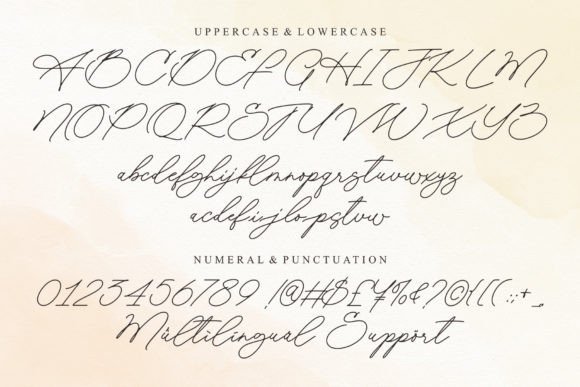 UPPERCASE & LOWERCASE
ABCDEFGHIJKLM
NOPQRSTUVWXYZ
abcdefghijklmnopqrstuvwxyz
acdefijlopstvw
NUMERAL & PUNCTUATION
0123456789 !@#$£¥%&?©{[( .:,+_
Mûltilingual Suppört